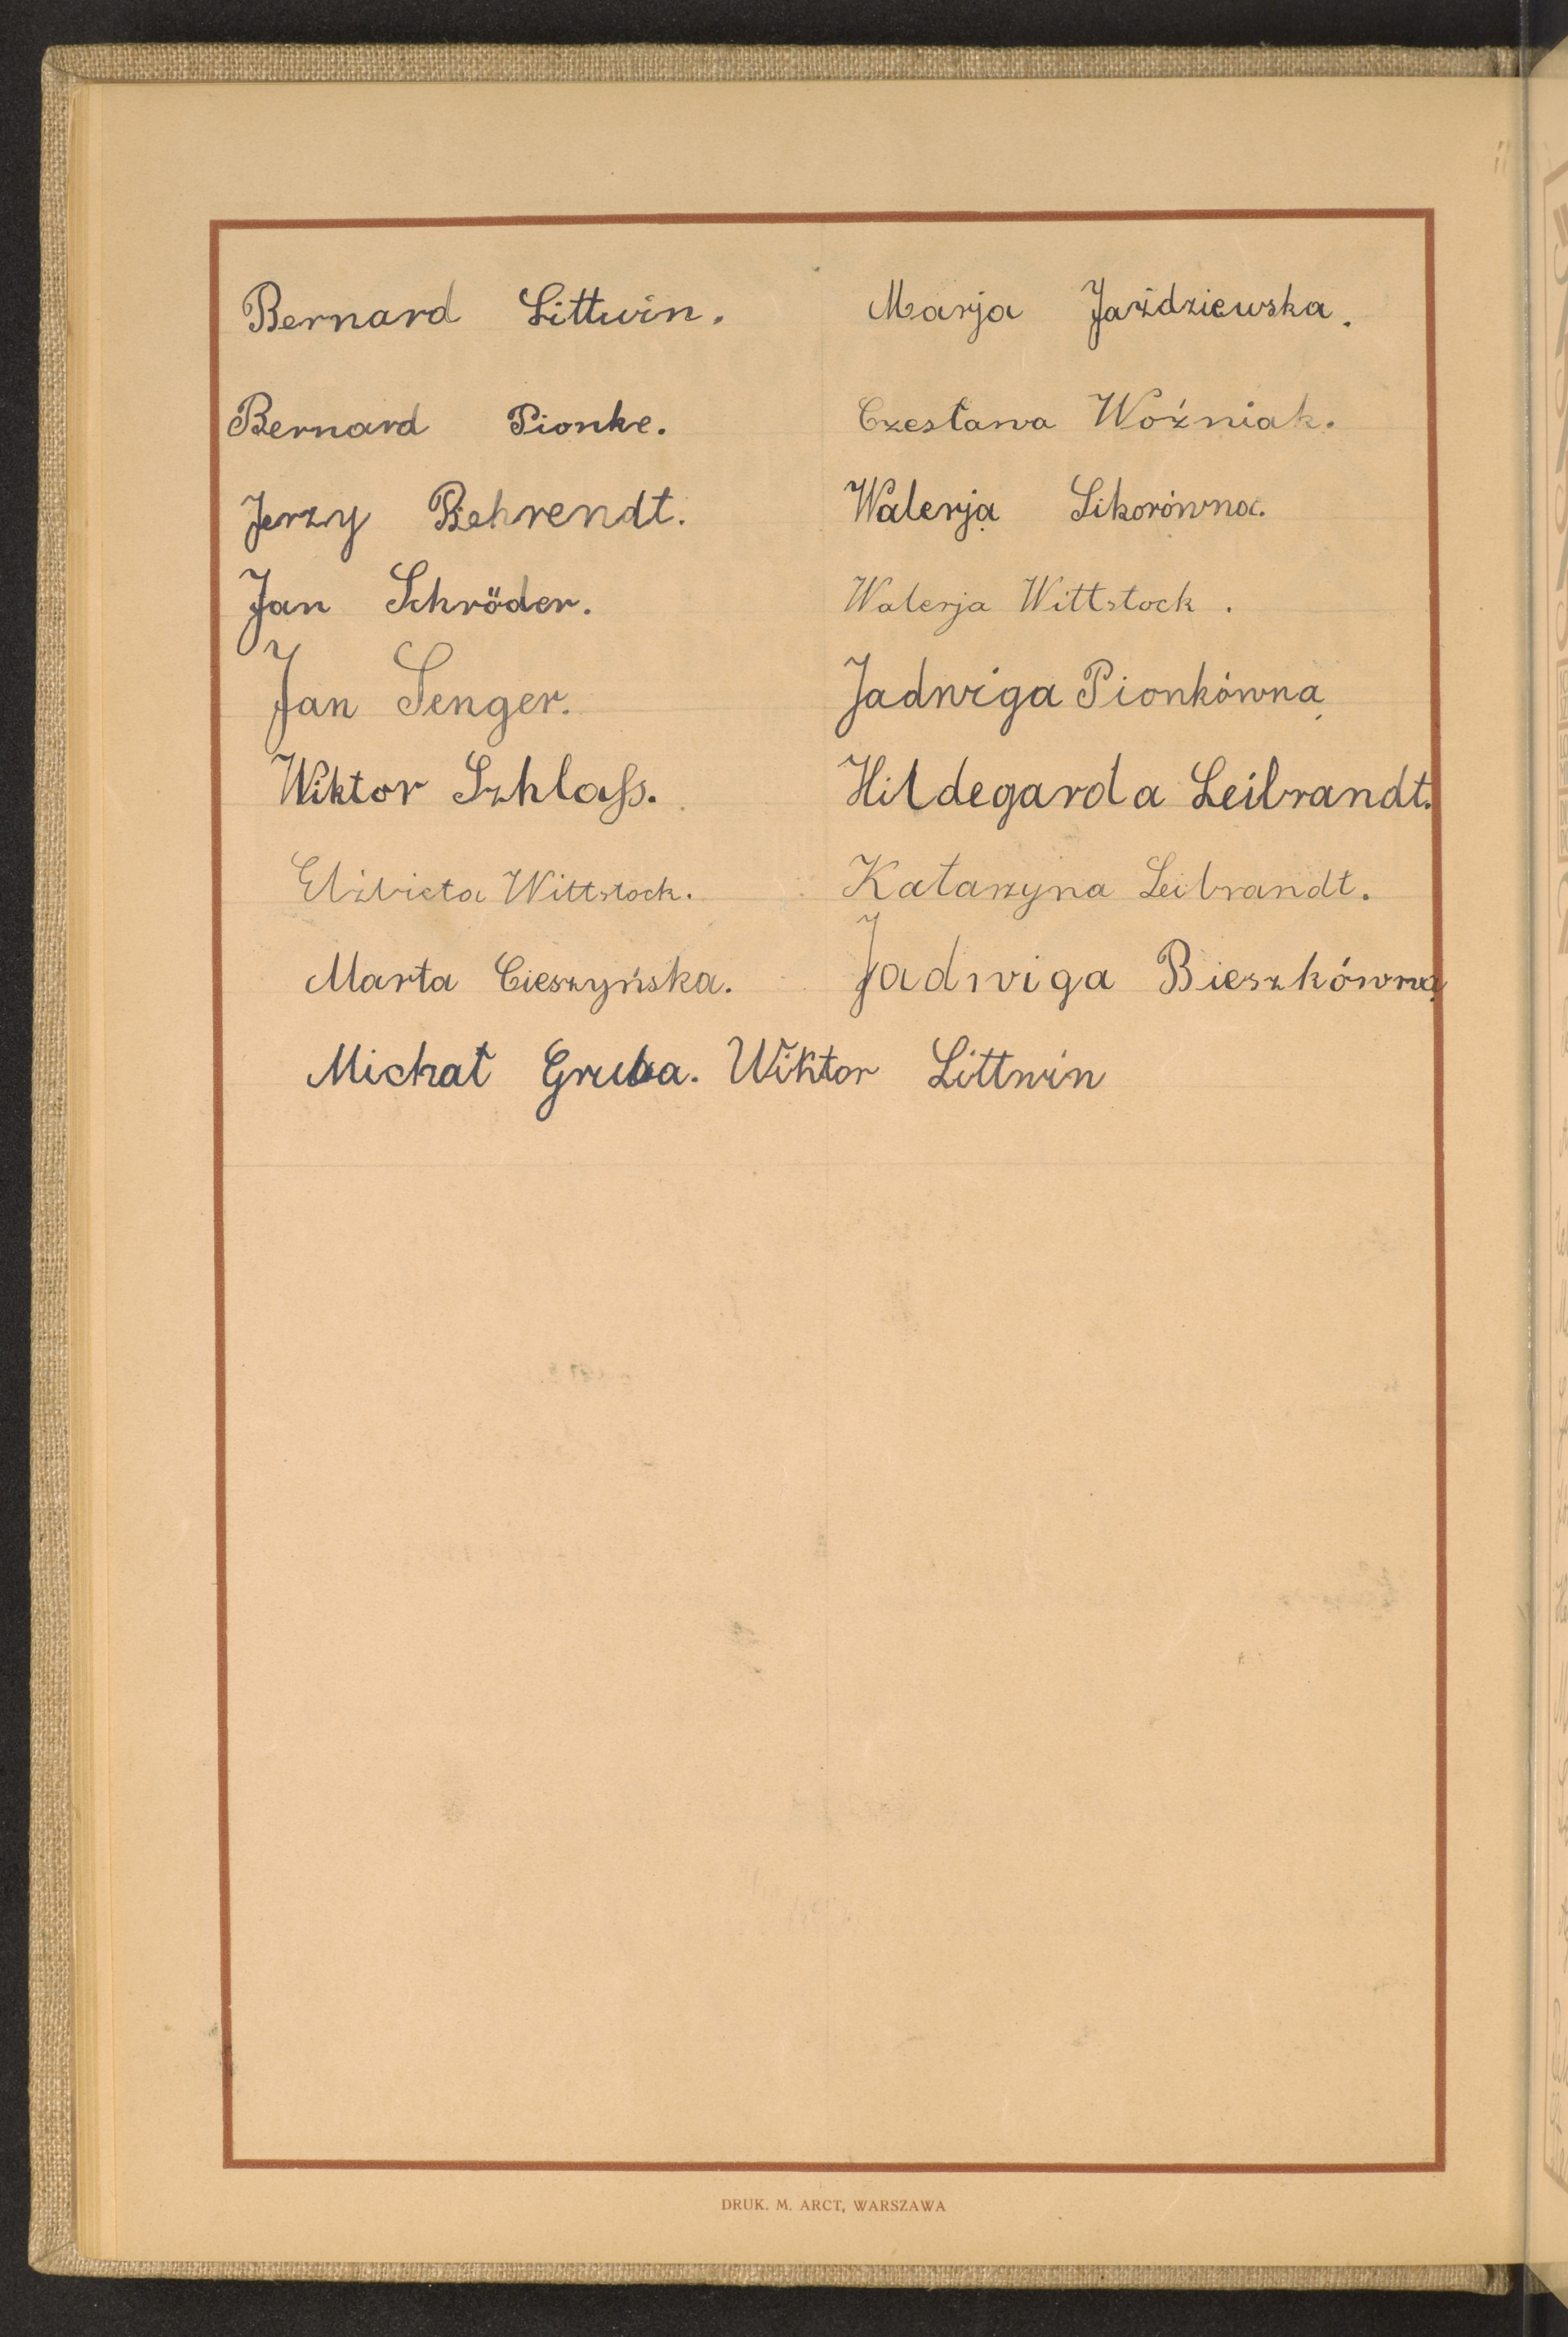 Bernard Littwin. Marja Jażdziewska.
Bernard Pionke. Czesława Woźniak.
Jerzy Behrendt. Walerja Sikorówna.
Jan Schröder. Walerja Wittstock.
Jan Senger. Jadwiga Pionkówna.
Wiktor Szhlaß. Hildegarda Leibrandt.
Elżbieta Wittstock. Katarzyna Leibrandt.
Marta Cieszyńska. Jadwiga Bieszkówna.
Michał Gruba. Wiktor Littwin
DRUK. M. ARCT, WARSZAWA